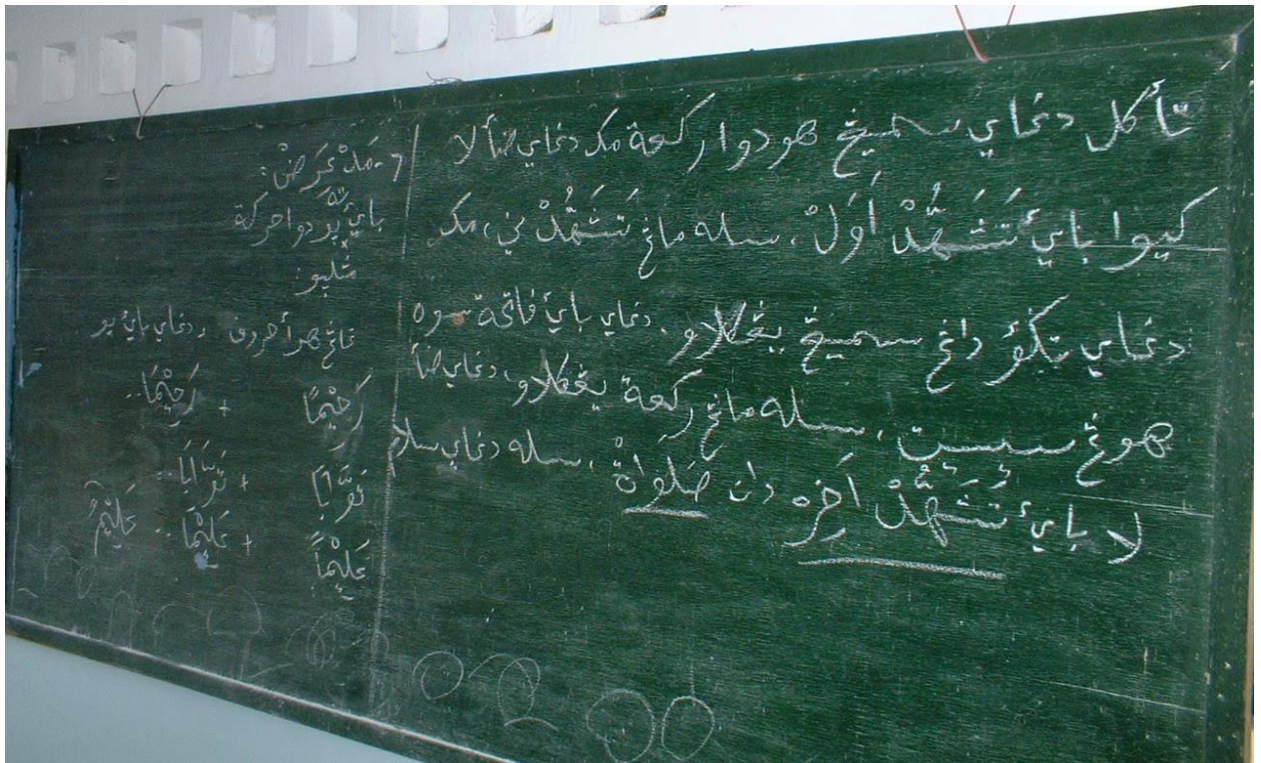 تأكل دغاي سميغ هو دوا ركعة مك دغاي ضألا
كيوا بايئ تَشَهُّدْ أَوَلْ، سله ماغ تَشَهُّدْ ني، مك
دغاي يتكؤ داغ سميغ يغكلاو، دغاي بايئ فاتحة سوره
هوغ سيت، سله ماغ ركعة يغكلاو، دغاي ضأ
لا بايئ تَشَهُّدْ اَخِره دان صَلَوَاةْ، سله دغاي سلام
مَدْ عَرَضْ:
بايئ دوا حركة
دغاي بايئ بر
رَحِيْمًا + رَحِيْمَا..
تَوَّابًا + تَوَّابَا..
عَلِيْمًا + عَلِيْمَا.. عَلِيْمٌ